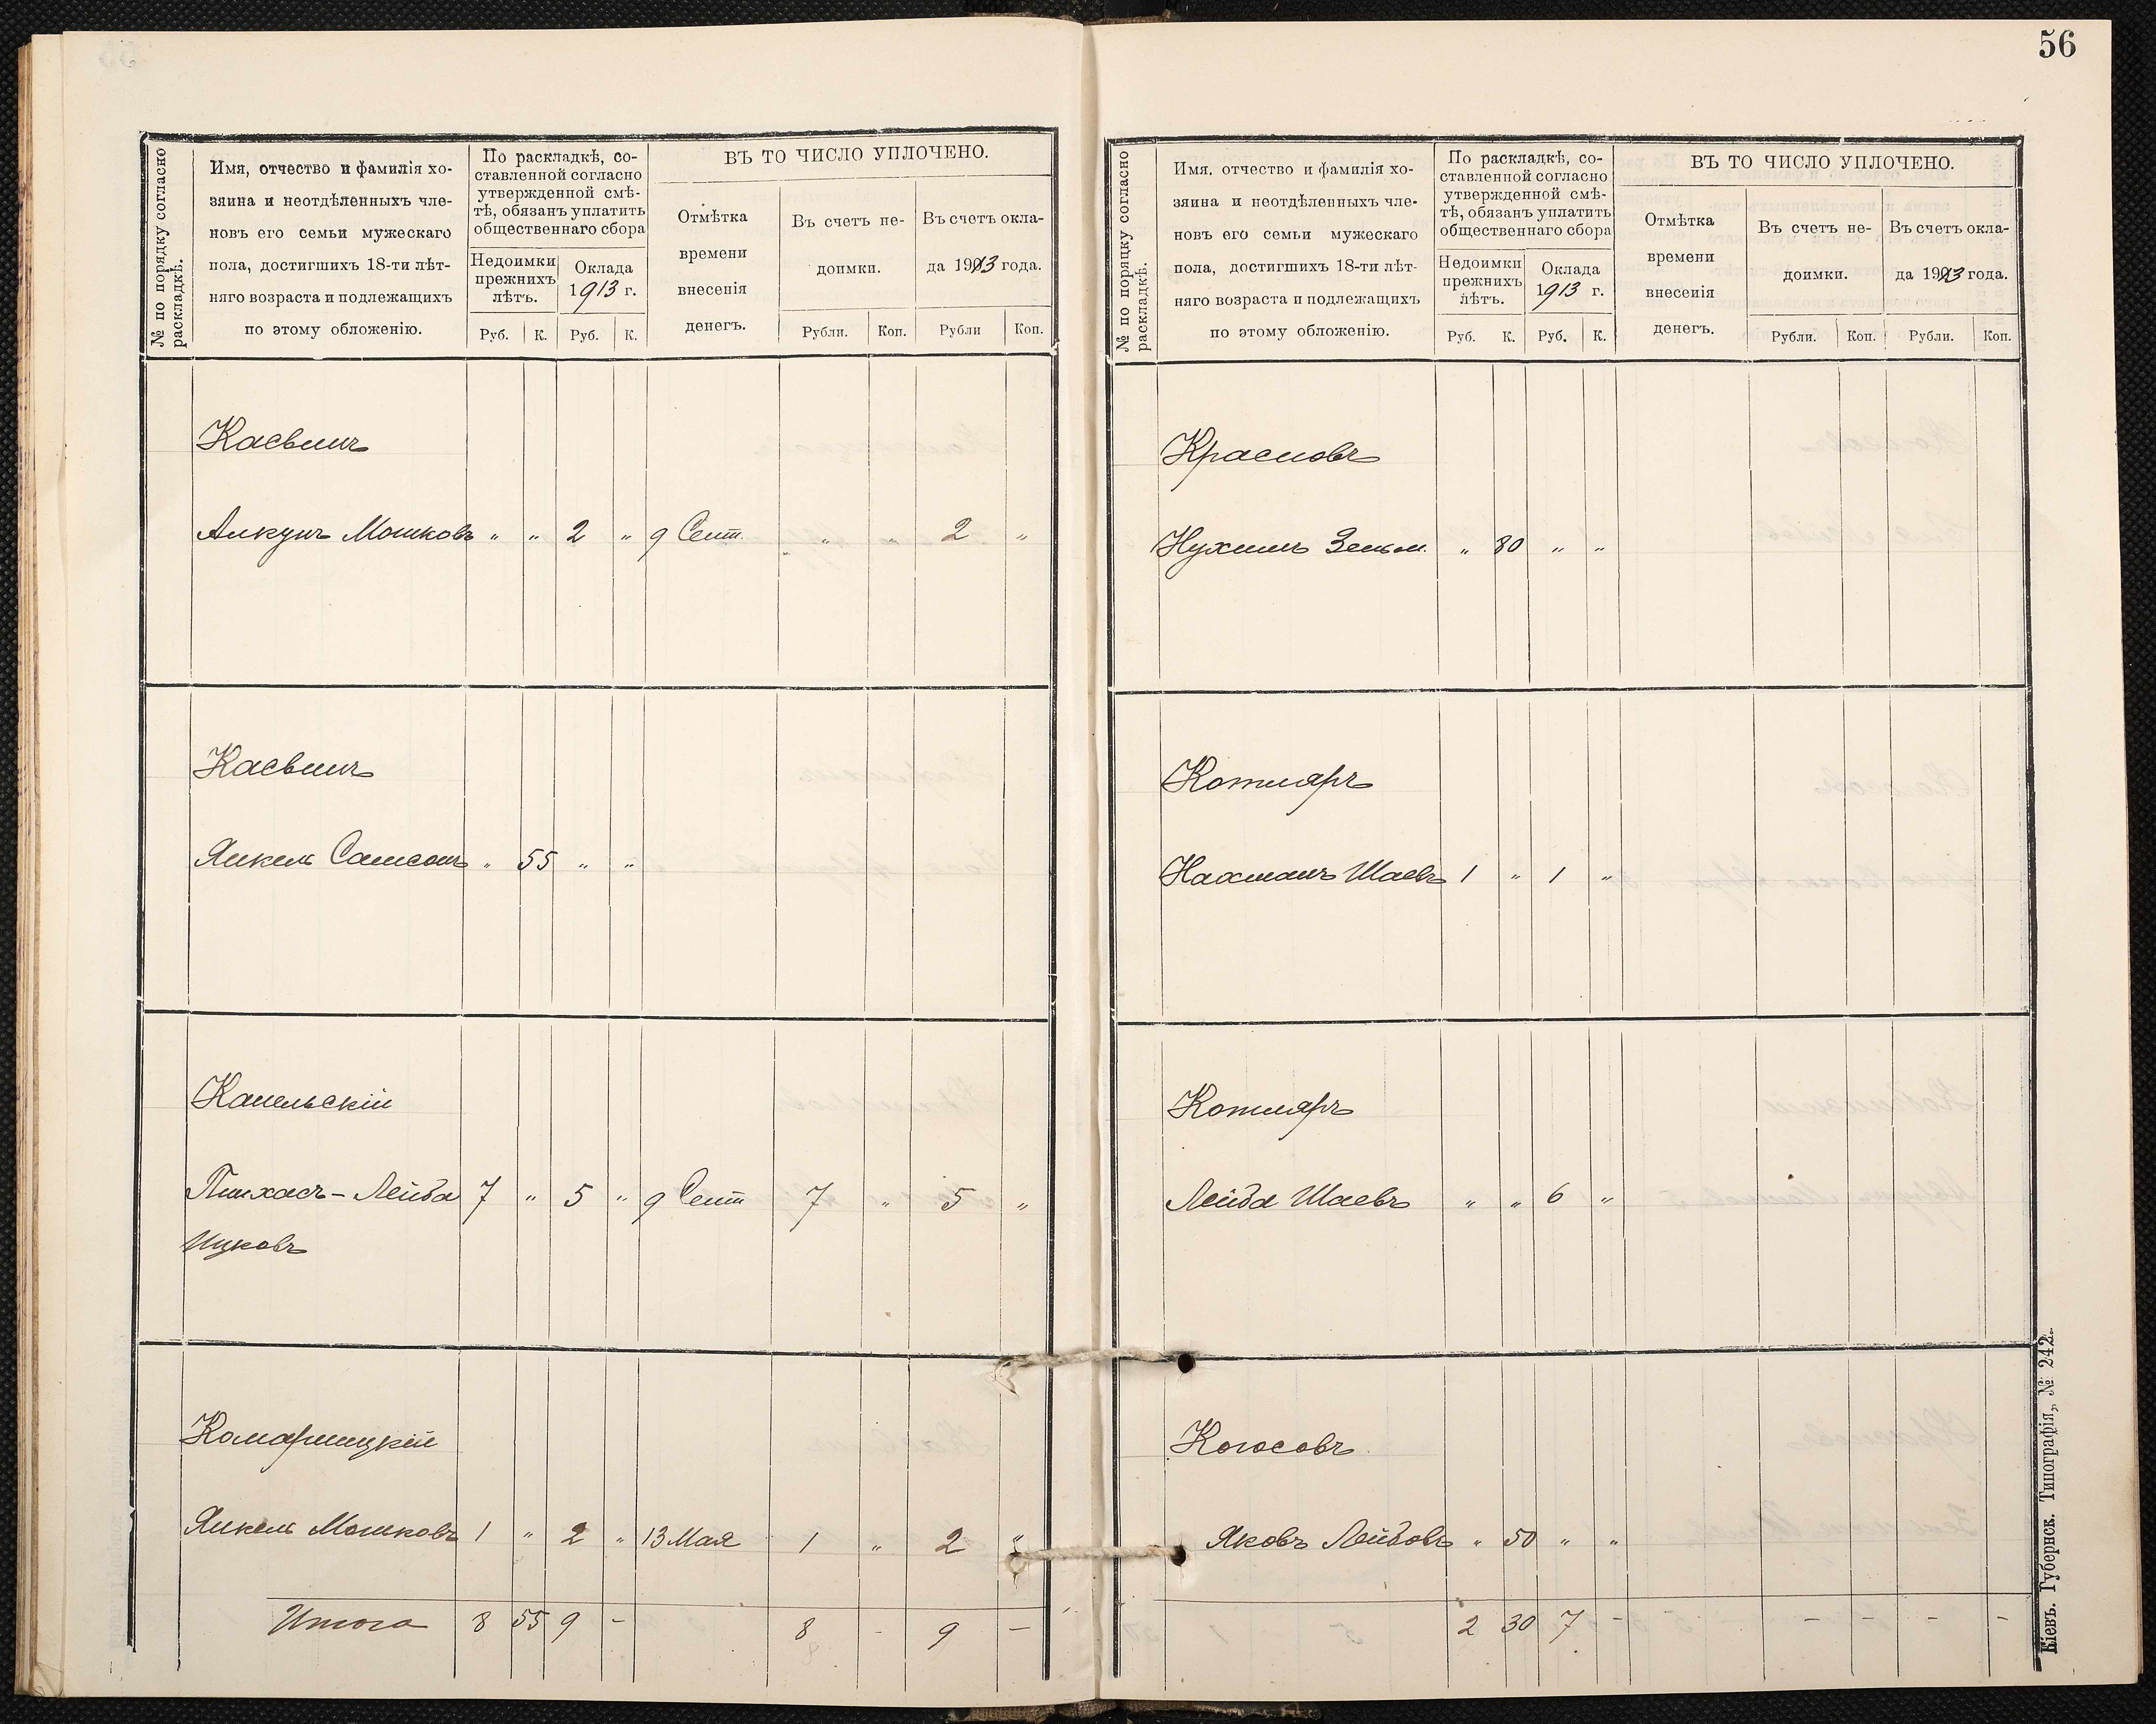 56
№ по порядку согласно раскладкѣ.
Имя, отчество и фамилія хо-
зяина и неотдѣленныхъ чле-
новъ его семьи мужескаго
пола, достигшихъ 18-ти лѣт-
няго возраста и подлежащихъ
по этому обложенію.
По раскладкѣ, со-
ставленной согласно
утвержденной смѣ-
тѣ, обязанъ уплатить
общественнаго сбора
Недоимки
прежнихъ
лѣтъ.
Оклада
1913 г.
Руб. К. Руб. К.
ВЪ ТО ЧИСЛО УПЛОЧЕНО.
Отмѣтка
времени
внесенія
денегъ.
Въ счетъ не-
доимки.
Въ счетъ окла-
да 1913 года.
Рубли. Коп. Рубли Коп.
Касвинъ
Алкунъ Мошковъ " " 2 " 9 Сент. " " 2 "
Касвинъ
Янкель Самсонъ " 55 " "
Канельскій
Пинхасъ-Лейба 7 " 5 " 9 Сент 7 " 5 "
Ицковъ
Комарницкій
Янкель Мошковъ 1 " 2 " 13 Мая 1 " 2 "
Итого 8 55 9 - 8 - 9 -
№ по порядку согласно раскладкѣ.
Имя, отчество и фамилія хо-
зяина и неотдѣленныхъ чле-
новъ его семьи мужескаго
пола, достигшихъ 18-ти лѣт-
няго возраста и подлежащихъ
по этому обложенію.
По раскладкѣ, со-
ставленной согласно
утвержденной смѣ-
тѣ, обязанъ уплатить
общественнаго сбора
Недоимки
прежнихъ
лѣтъ.
Оклада
1913 г.
Руб. К. Руб. К.
ВЪ ТО ЧИСЛО УПЛОЧЕНО.
Отмѣтка
времени
внесенія
денегъ.
Въ счетъ не-
доимки.
Въ счетъ окла-
да 1913 года.
Рубли. Коп. Рубли. Коп.
Красновъ
Нухимъ Зельм. " 80 " "
Котляръ
Нахманъ Шаевъ 1 " 1 "
Котляръ
Лейба Шаевъ " " 6 "
Когосовъ
Яковъ Лейбовъ " 50 " "
2 30 7 - - - - -
Кіевъ. Губернск. Типографія, № 242.